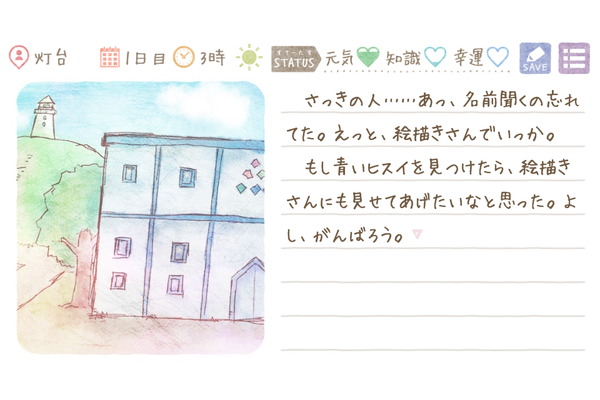 灯台 1日目 3時 すてーたす STATUS 元気 知識 幸運 SAVE
さっきの人……あっ、名前聞くの忘れ
てた。えっと、絵描きさんでいっか。
もし青いヒスイを見つけたら、絵描き
さんにも見せてあげたいなと思った。よ
し、がんばろう。